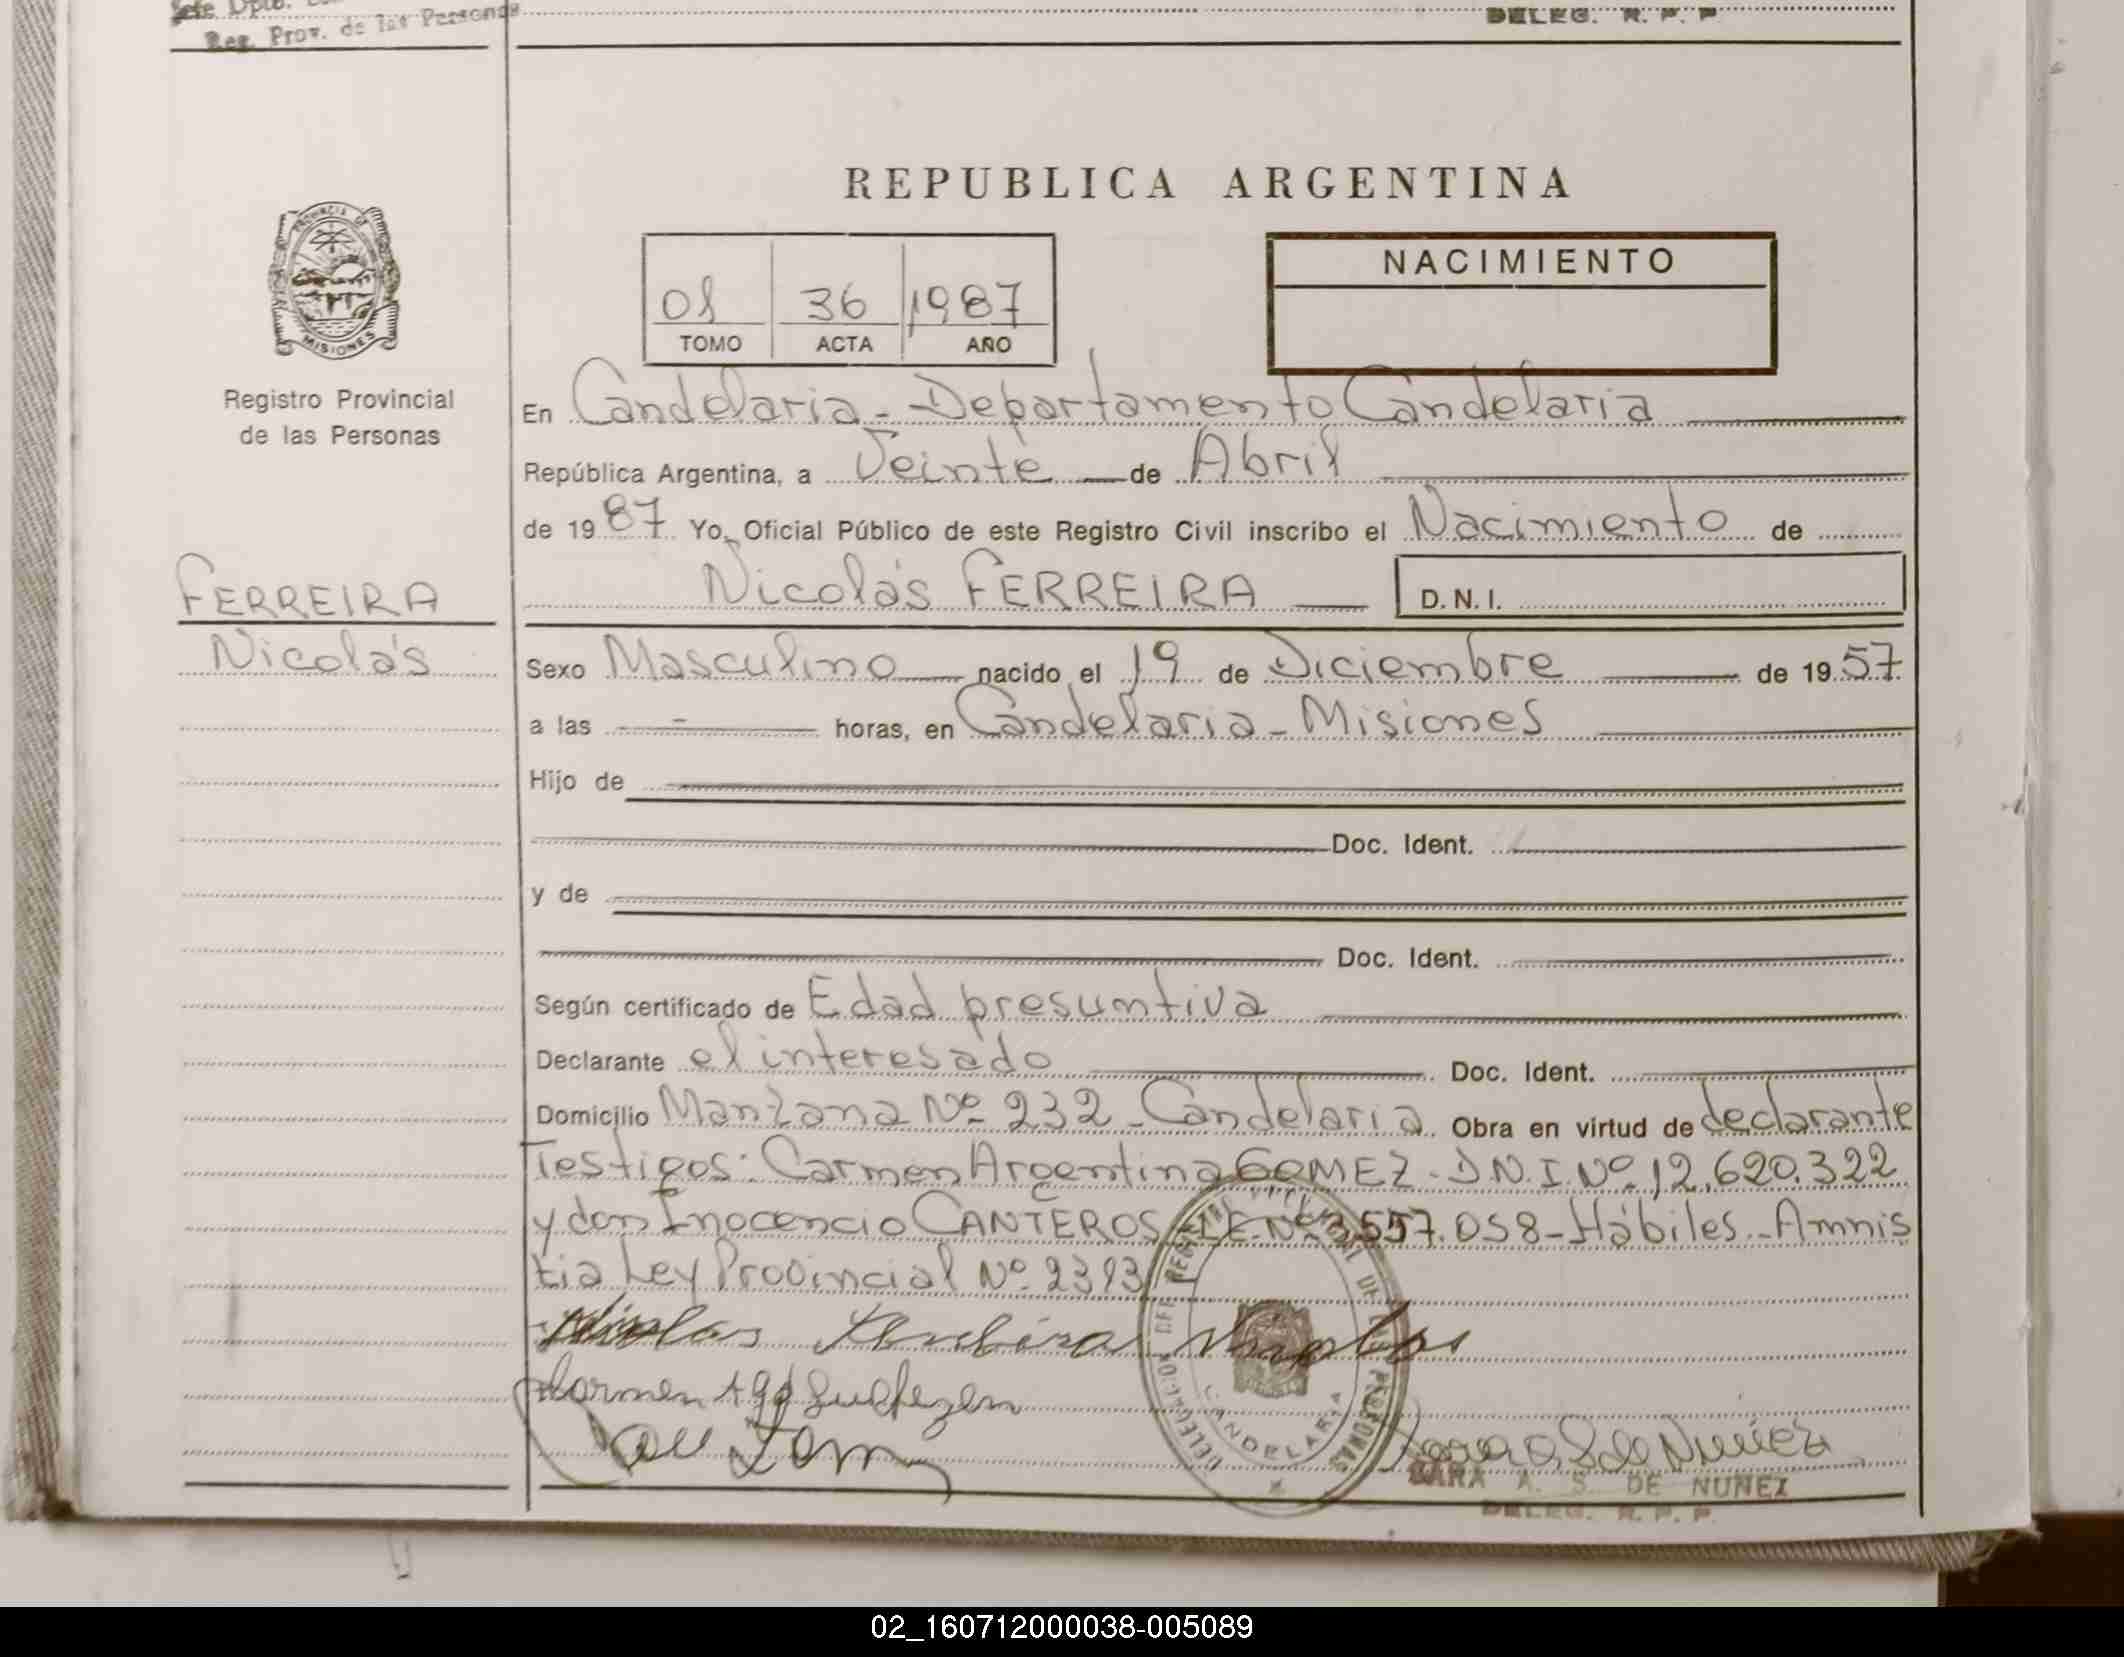 Jefe Dpto.
Reg. Prov. de las Personas
DELEG. R. P. P.
REPUBLICA ARGENTINA
PROVINCIA DE
MISIONES
Registro Provincial
de las Personas
36 1987
TOMO ACTA AÑO
NACIMIENTO
En Candelaria - Departamento Candelaria
República Argentina, a Veinte de Abril
de 1987 Yo, Oficial Público de este Registro Civil inscribo el Nacimiento de
Nicolás FERREIRA D.N.I.
FERREIRA
Nicolás
Sexo Masculino nacido el 19 de Diciembre de 1957
a las - horas, en Candelaria - Misiones
Hijo de
Doc. Ident.
y de
Doc. Ident.
Según certificado de Edad presuntiva
Declarante el interesado Doc. Ident.
Domicilio Manzana Nº 232 - Candelaria. Obra en virtud de declarante
Testigos: Carmen Argentina GOMEZ - D.N.I. Nº 12.620.322
y don Inocencio CANTEROS - L.E. Nº 3.557.058 - Hábiles - Amnis
tia Ley Provincial Nº 2393
Nicolas
DELEGACION DEL REGISTRO PROVINCIAL DE LAS PERSONAS
CANDELARIA
SARA A. S. DE NUÑEZ
DELEG. R. P. P.
02_160712000038-005089